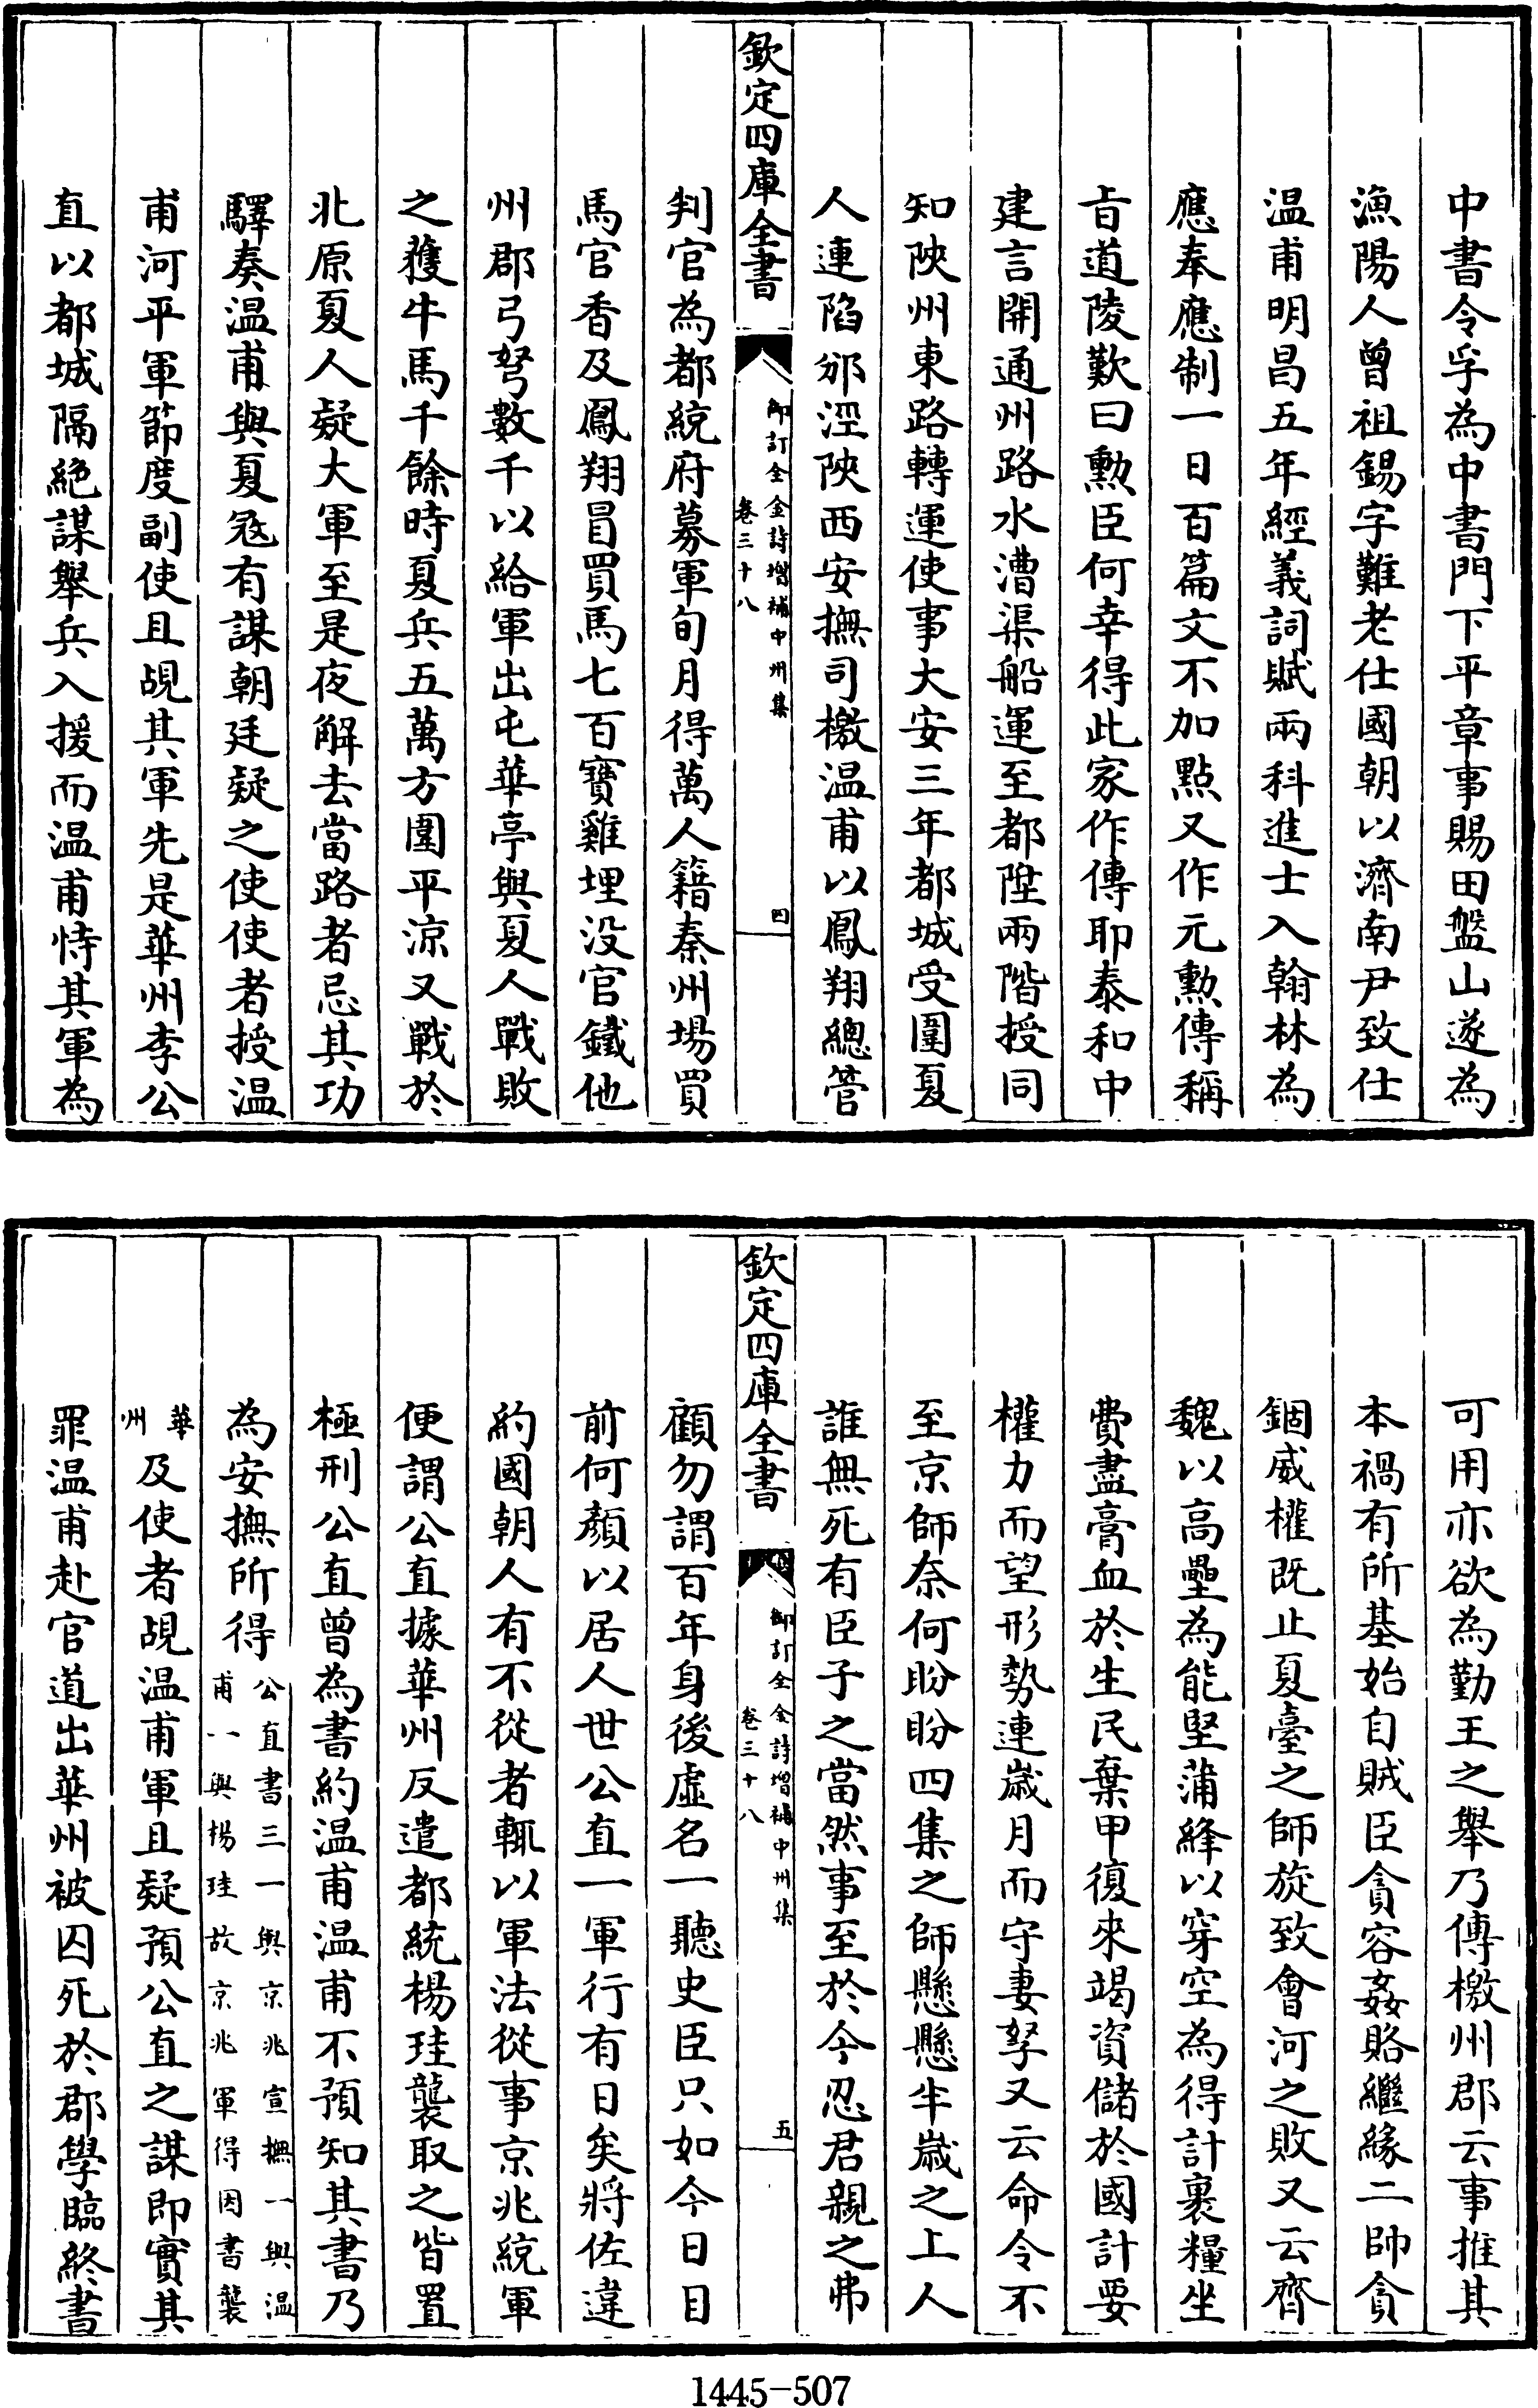 中書令孚為中書門下平章事賜田盤山遂為
漁陽人曾祖錫字難老仕國朝以濟南尹致仕
温甫明昌五年經義詞賦兩科進士入翰林為
應奉應制一日百篇文不加點又作元勲傳稱
旨道陵歎曰勲臣何幸得此家作傳耶泰和中
建言開通州路水漕渠船運至都陞兩階授同
知陜州東路轉運使事大安三年都城受圍夏
人連陷邠涇陜西安撫司檄温甫以鳳翔總管
欽定四庫全書
御訂全金詩增補中州集
卷三十八
四
判官為都統府募軍旬月得萬人籍秦州場買
馬官香及鳳翔冒買馬七百寶雞埋没官鐵他
州郡弓弩數千以給軍出屯華亭與夏人戰敗
之獲牛馬千餘時夏兵五萬方圍平涼又戰於
北原夏人疑大軍至是夜解去當路者忌其功
驛奏温甫與夏㓂有謀朝廷疑之使使者授温
甫河平軍節度副使且覘其軍先是華州李公
直以都城隔絶謀舉兵入援而温甫恃其軍為
可用亦欲為勤王之舉乃傳檄州郡云事推其
本禍有所基始自賊臣貪容姦賂繼緣二帥貪
錮威權既止夏臺之師旋致會河之敗又云齊
魏以高壘為能堅蒲絳以穿空為得計裹糧坐
費盡膏血於生民棄甲復來竭資儲於國計要
權力而望形勢連歲月而守妻孥又云命令不
至京師奈何盼盼四集之師懸懸半歲之上人
誰無死有臣子之當然事至於今忍君親之弗
欽定四庫全書
御訂全金詩增補中州集
卷三十八
五
顧勿謂百年身後虚名一聽史臣只如今日目
前何顏以居人世公直一軍行有日矣將佐違
約國朝人有不從者輒以軍法從事京兆統軍
便謂公直據華州反遣都統楊珪襲取之皆置
極刑公直曾為書約温甫温甫不預知其書乃
為安撫所得公直書三一與京兆宣撫一與温
甫一與楊珪故京兆軍得因書襲
華
州
及使者覘温甫軍且疑預公直之謀即實其
罪温甫赴官道出華州被囚死於郡學臨終書
1445-507